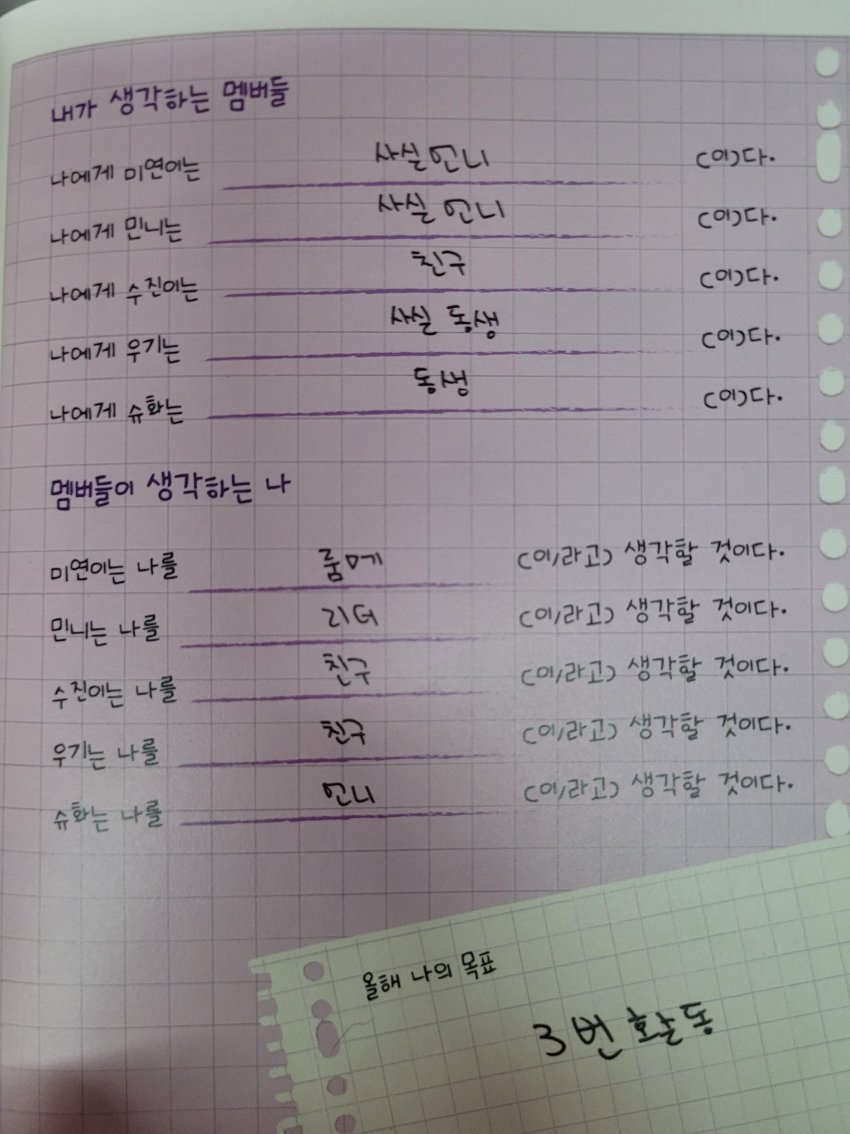 내가 생각하는 멤버들
나에게 미연이는 사실 언니 (이)다.
나에게 민니는 사실 언니 (이)다.
나에게 수진이는 친구 (이)다.
나에게 우기는 사실 동생 (이)다.
나에게 슈화는 동생 (이)다.
멤버들이 생각하는 나
미연이는 나를 룸메 (이/라고) 생각할 것이다.
민니는 나를 리더 (이/라고) 생각할 것이다.
수진이는 나를 친구 (이/라고) 생각할 것이다.
우기는 나를 친구 (이/라고) 생각할 것이다.
슈화는 나를 언니 (이/라고) 생각할 것이다.
올해 나의 목표
3번 활동